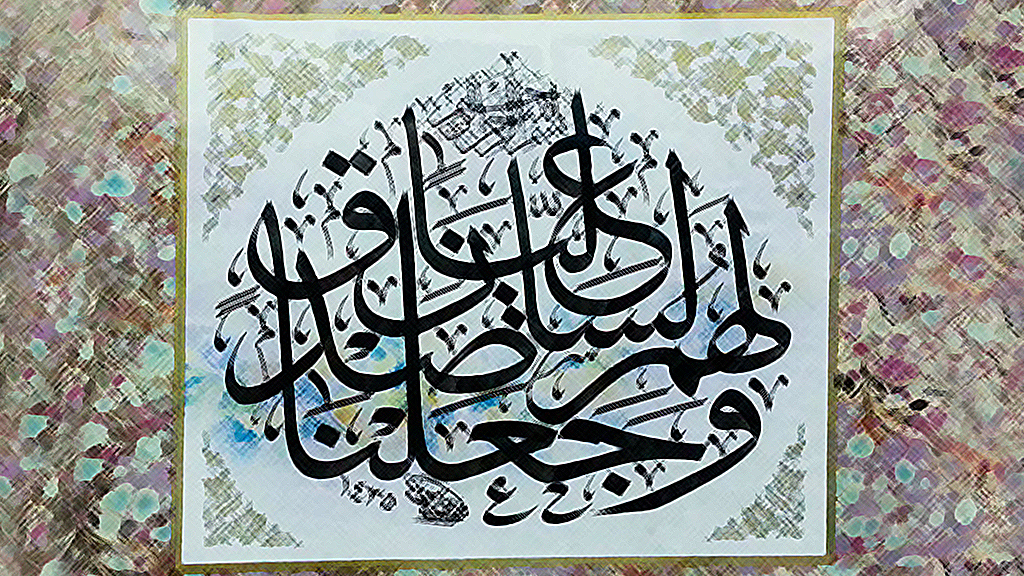 وَجَعَلْنَا لَهُمْ لِسَانَ صِدْقٍ عَلِيًّا
١٤٣٥